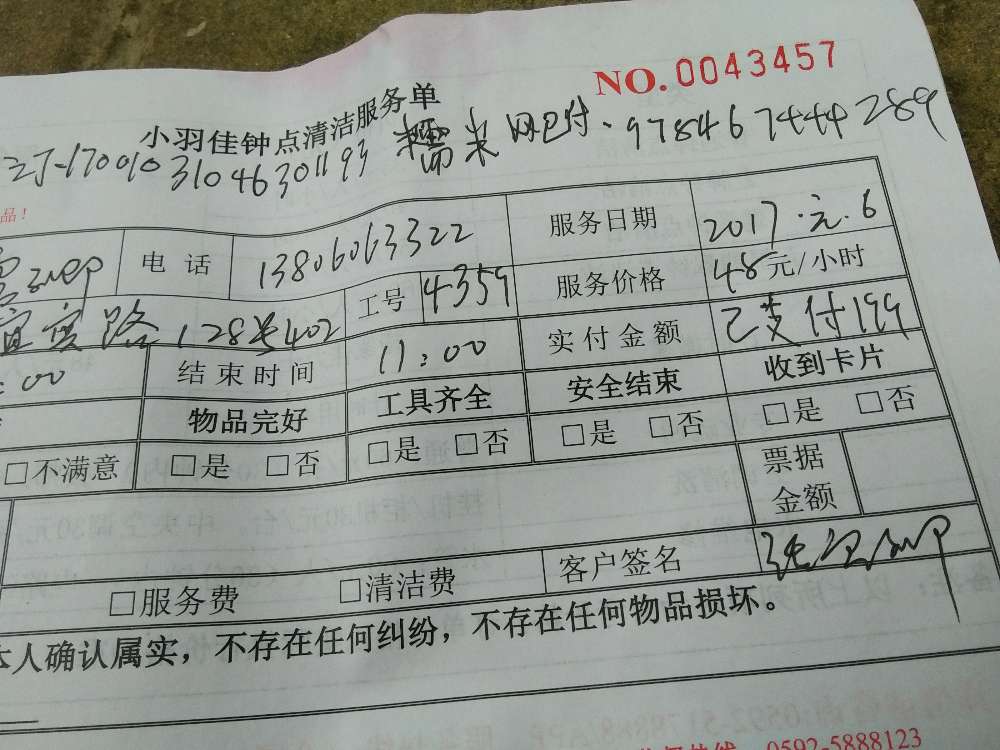 NO.0043457
小羽佳钟点清洁服务单
糯米网已付.978467444289
品！
电话 13806063322 服务日期 2017.元.6
工号 4359 服务价格 48元/小时
宜宾路128号402 实付金额 已支付199
:00 结束时间 11:00 安全结束 收到卡片
物品完好 工具齐全 □是 □否 □是 □否
□不满意 □是 □否 □是 □否 票据金额
客户签名
□服务费 □清洁费
本人确认属实，不存在任何纠纷，不存在任何物品损坏。
0592-5888123